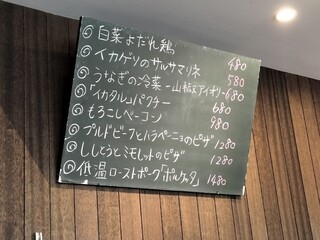 ◎白菜よだれ鶏 480
◎イカゲソのサルサマリネ 580
◎うなぎの冷菜 -山椒アイオリ- 680
◎「イカタル」パクチー 680
◎もろこしベーコン 980
◎プルドビーフとハラペーニョのピザ 1280
◎ししとうとミモレットのピザ 1280
◎低温ローストポーク「ポルケッタ」 1480